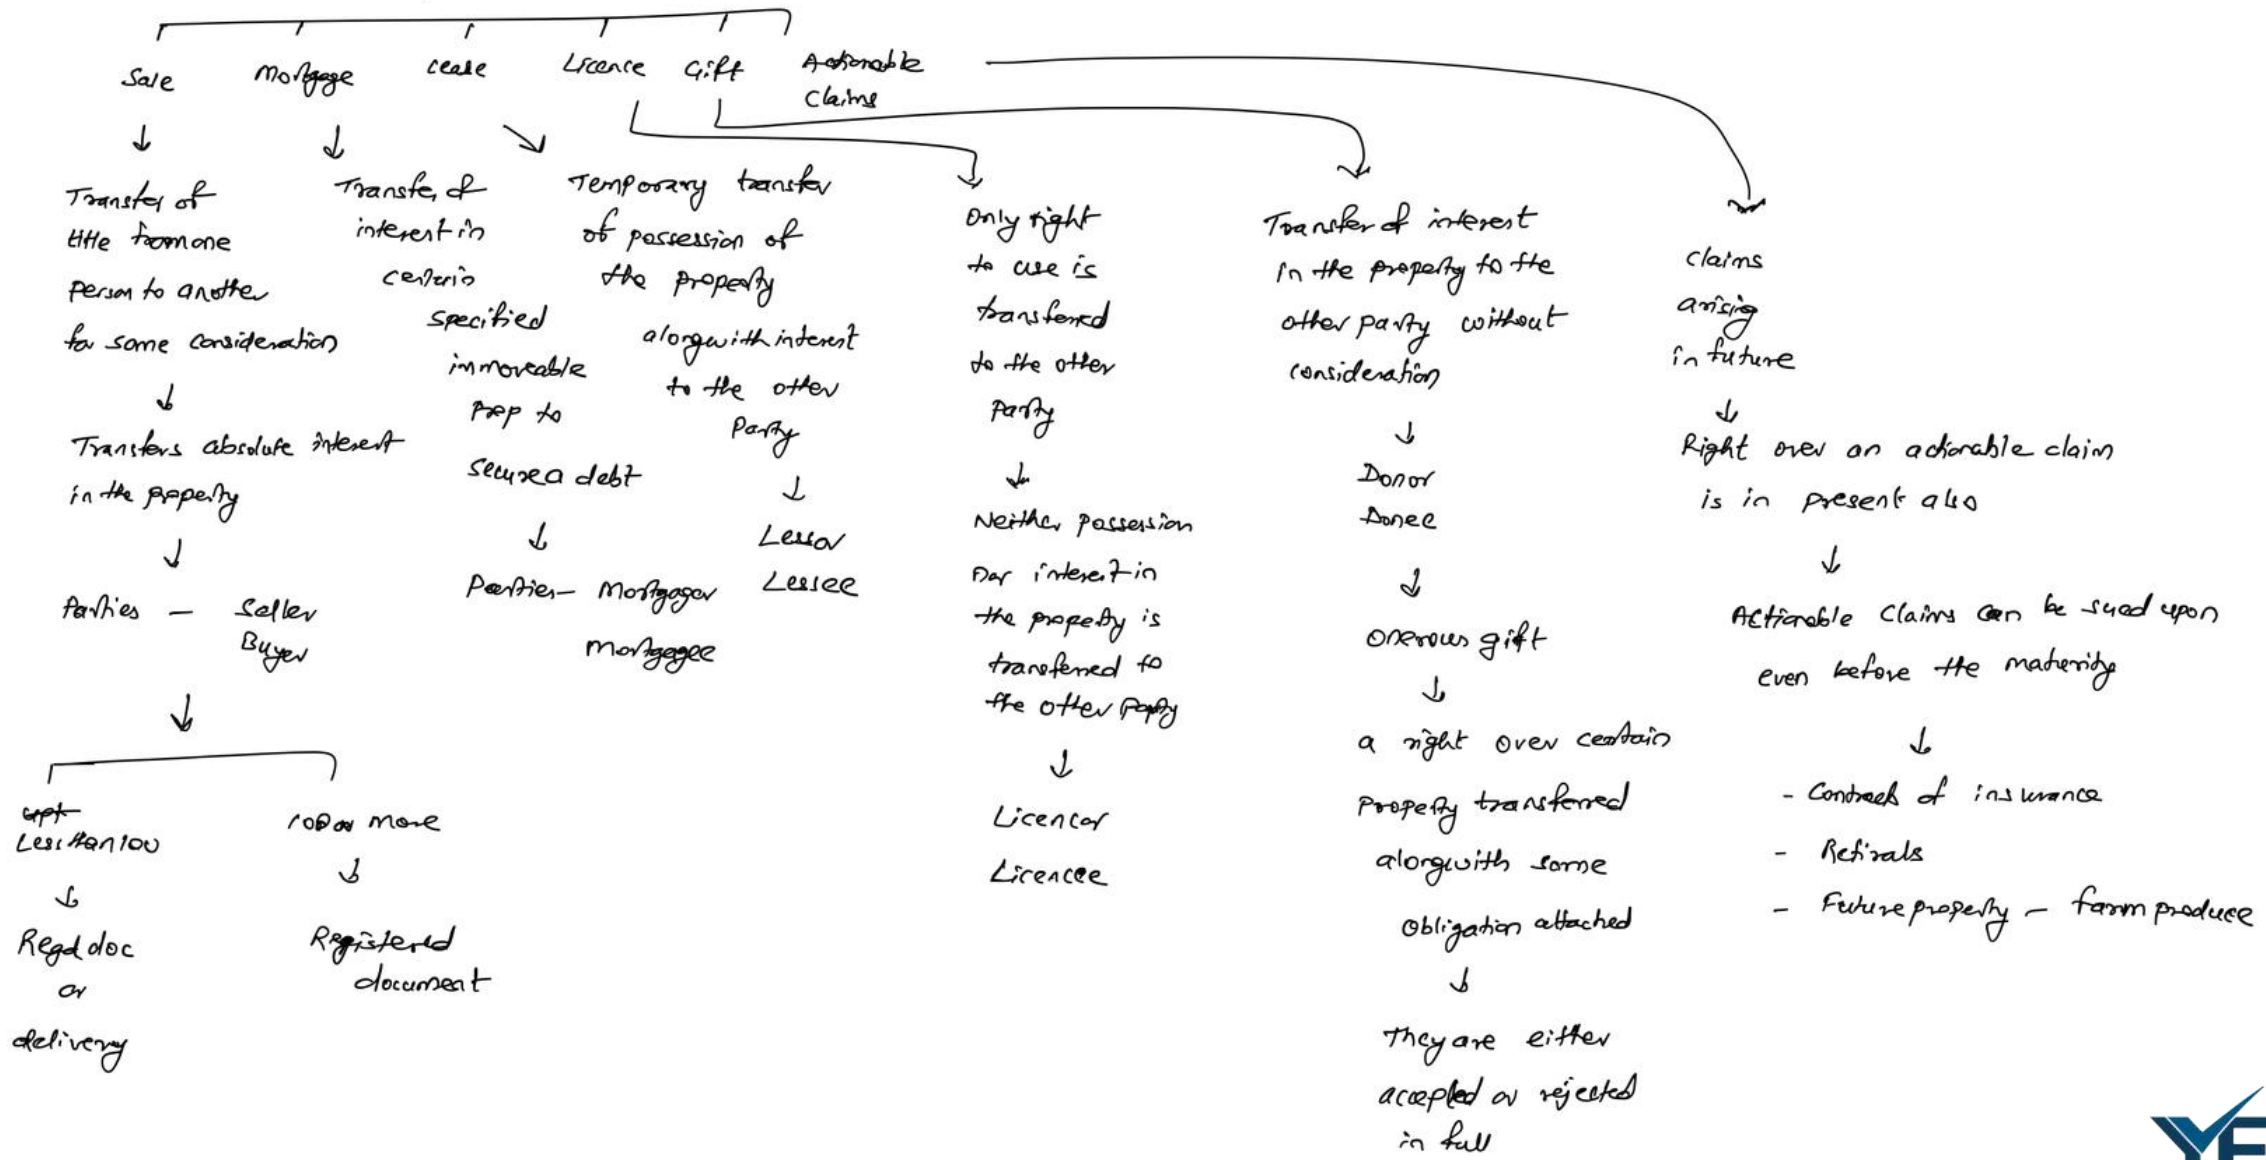 Sale
Mortgage
Lease
Licence
Gift
Actionable
Claims
Transfer of
title from one
person to another
for some consideration
Transfers absolute interest
in the property
Parties - Seller
Buyer
Less than 100
Regd doc
or
delivery
100 or more
Registered
document
Transfer of
interest in
certain
specified
immoveable
Prop to
secure a debt
Parties- Mortgagor
Mortgagee
Temporary transfer
of possession of
the property
alongwith interest
to the other
Party
Lessor
Lessee
Only right
to use is
transferred
to the other
Party
Neither possession
nor interest in
the property is
transferred to
the other Party
Licencor
Licencee
Transfer of interest
in the property to the
other party without
consideration
Donor
Donee
Onerous gift
a right over certain
Property transferred
alongwith some
Obligation attached
They are either
accepted or rejected
in full
Claims
arising
in future
Right over an actionable claim
is in present also
Actionable Claims can be sued upon
even before the maturity
- Contract of insurance
- Retirals
- Future property - farm produce